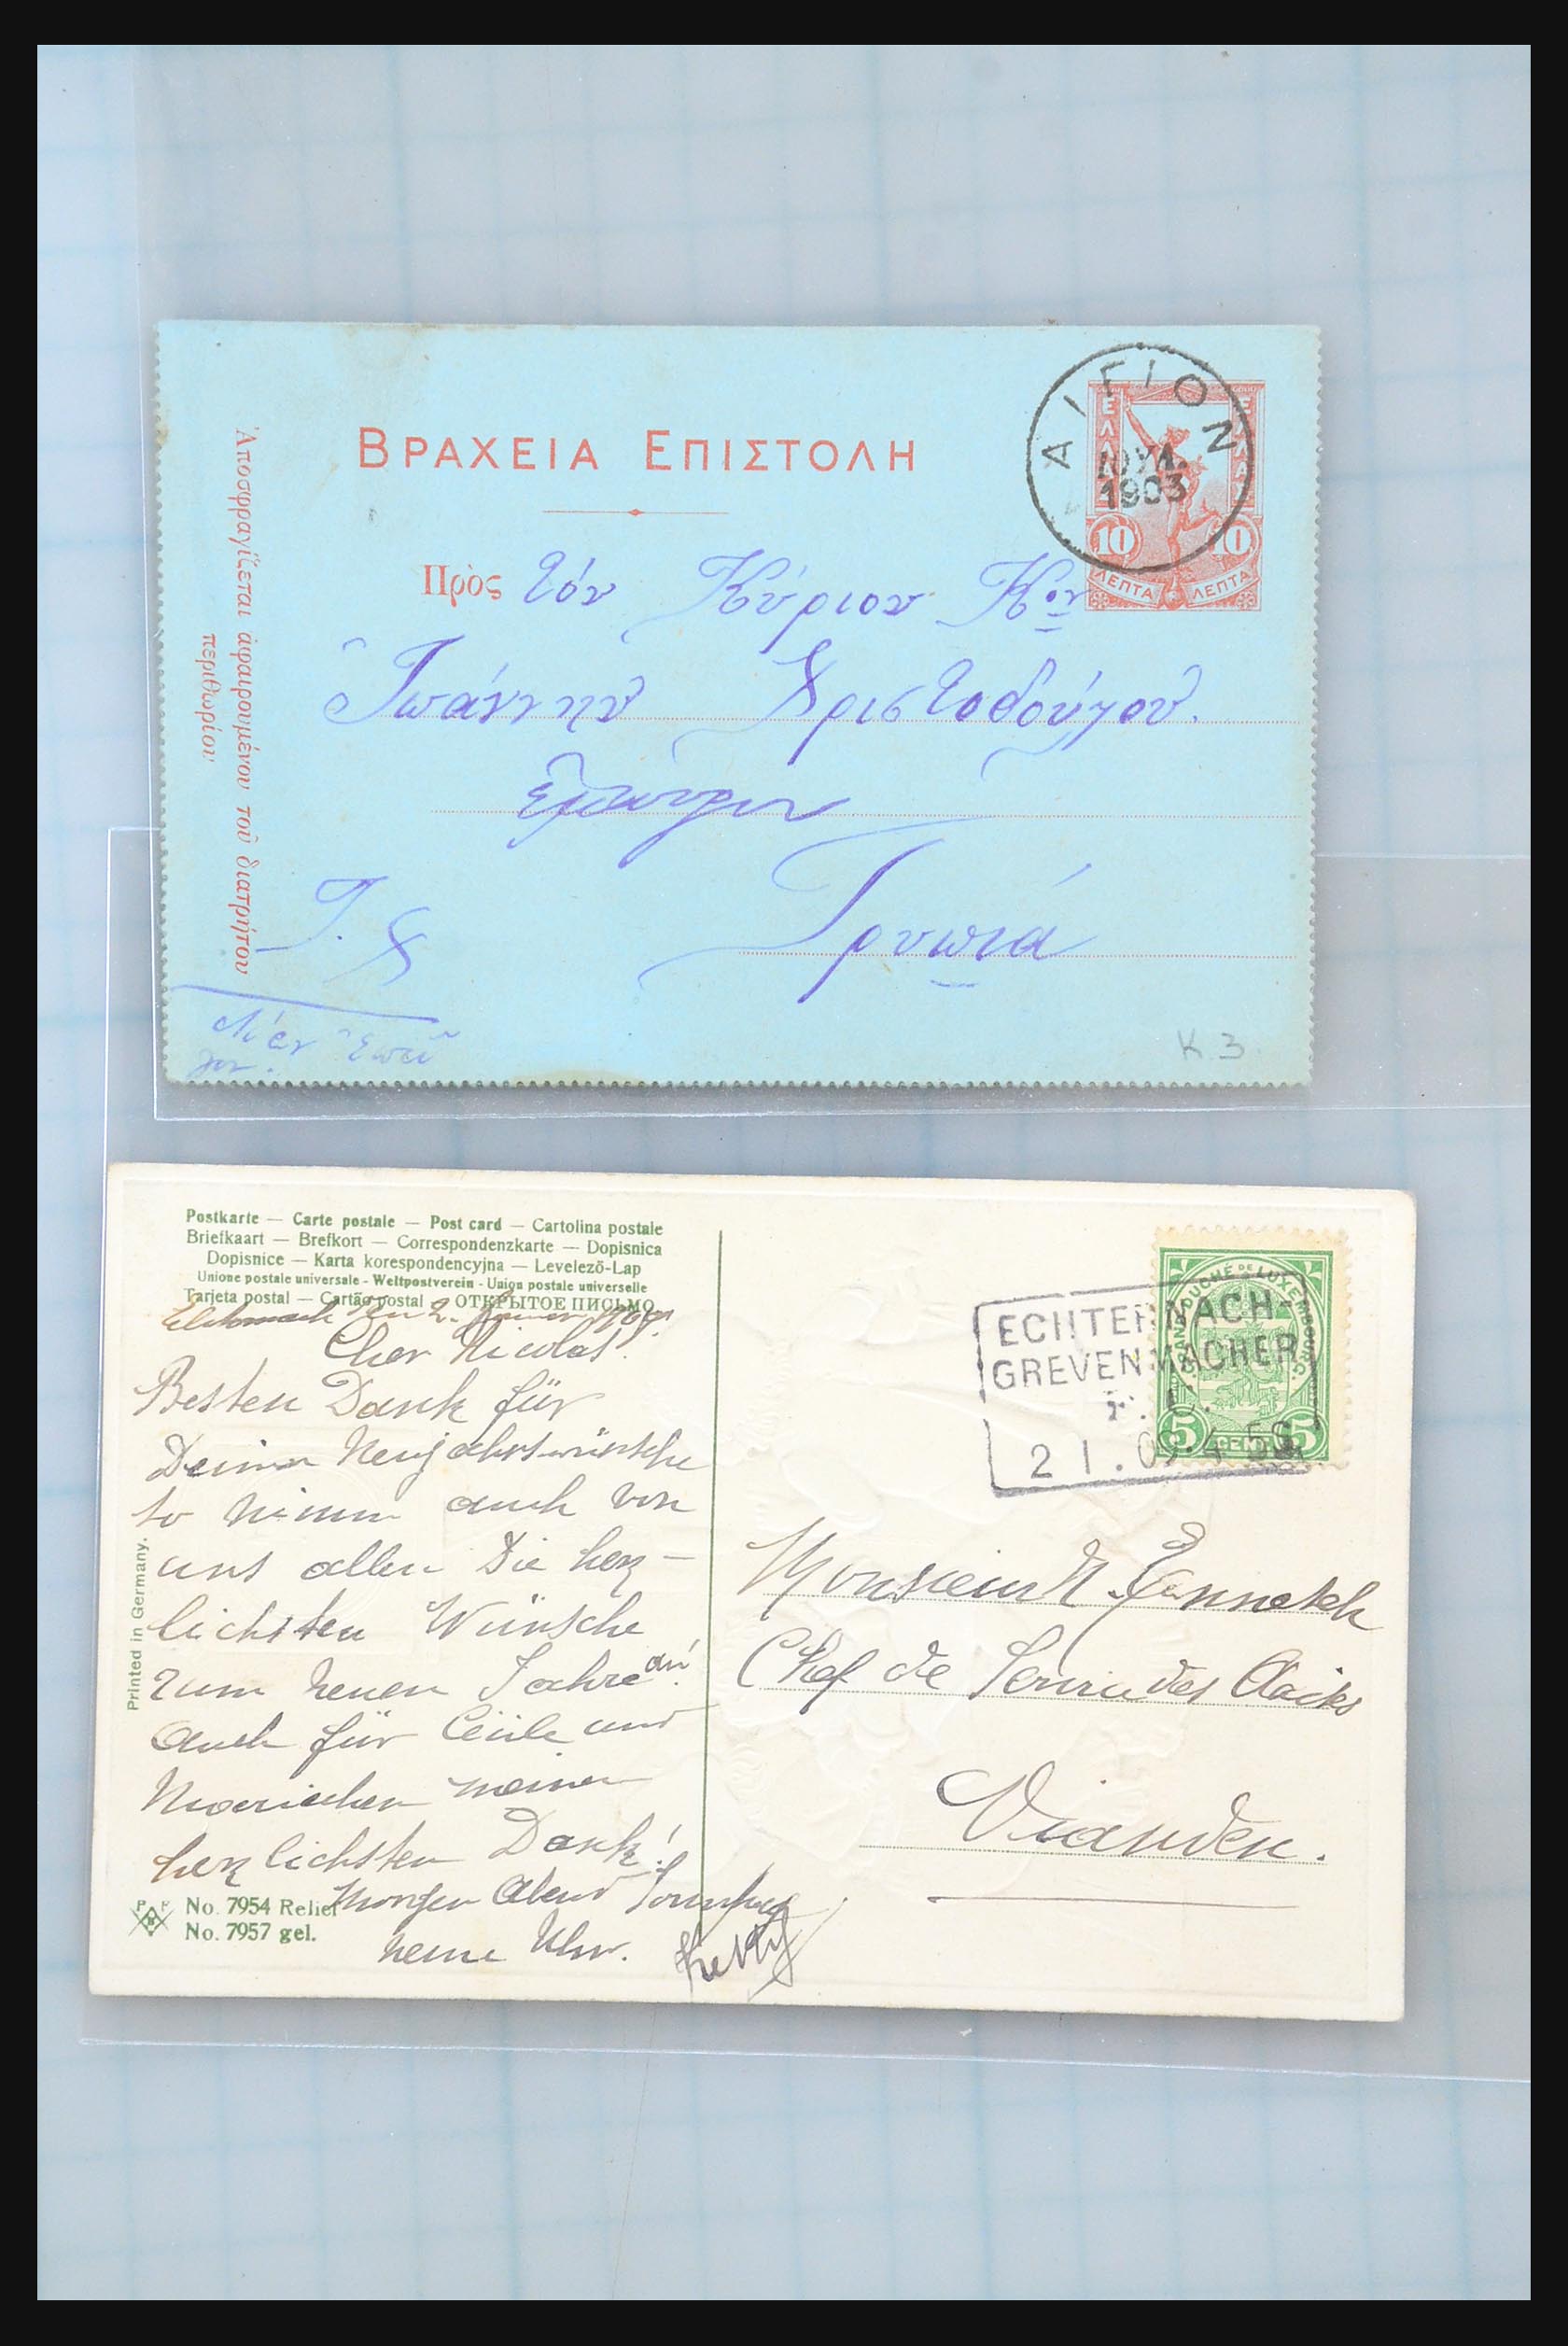 ΒΡΑΧΕΙΑ ΕΠΙΣΤΟΛΗ
ΑΙΓΙΟΝ
ΙΟΥΛ.
1903
ΕΛΛΑΣ
ΕΛΛΑΣ
10 10
ΛΕΠΤΑ ΛΕΠΤΑ
Πρὸς τόν Κύριον Κον
Ἰωάννην Χριστοδούλου.
ἔμπορον
Τρυπιά
Ἀποσφραγίζεται ἀφαιρουμένου τοῦ διατρήτου
περιθωρίου
K.3.
Postkarte — Carte postale — Post card — Cartolina postale
Briefkaart — Brefkort — Correspondenzkarte — Dopisnica
Dopisnice — Karta korespondencyjna — Levelező-Lap
Unione postale universale - Weltpostverein - Union postale universelle
Tarjeta postal — Cartão postal — ОТКРЫТОЕ ПИСЬМО
den 2. 1909.
Cher Nicolas!
Besten Dank für
Deine Neujahrswünsche
so nimm auch von
uns allen Die herz-
lichsten Wünsche
zum neuen Jahre an!
Auch für Cécile und
meinen
herzlichsten Dank!
Morgen Abend
neun Uhr. Ketty
Printed in Germany.
No. 7954 Relief
No. 7957 gel.
GRAND DUCHÉ DE LUXEMBOURG
5 CENT. 5
ECHTERNACH-
GREVENMACHER
2 1.09.4 50
Monsieur N.
Chef de Service des Accises
Vianden.